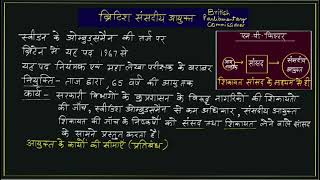 ब्रिटिश संसदीय आयुक्त British
Parliamentary
Commissioner
स्वीडन के ओम्बुड्समैन की तर्ज पर
ब्रिटेन में यह पद 1967 से
यह पद नियंत्रक एवं महा लेखा परीक्षक के बराबर
नियुक्ति - ताज द्वारा, 65 वर्ष की आयु तक
कार्य - सरकारी विभागों के कुप्रशासन के विरूद्ध नागरिकों की शिकायतों
की जाँच, स्वीडिश ओम्बुड्समैन से कम अधिकार, संसदीय आयुक्त
शिकायत की जाँच के निष्कर्षों को संसद तथा शिकायत लेने वाले सांसद
के सामने प्रस्तुत करता है।
आयुक्त के कार्यों की सीमाएँ (प्रतिबंध)
एम पी फिल्टर
सांसद
संसदीय
आयुक्त
शिकायत सांसद के माध्यम से ही